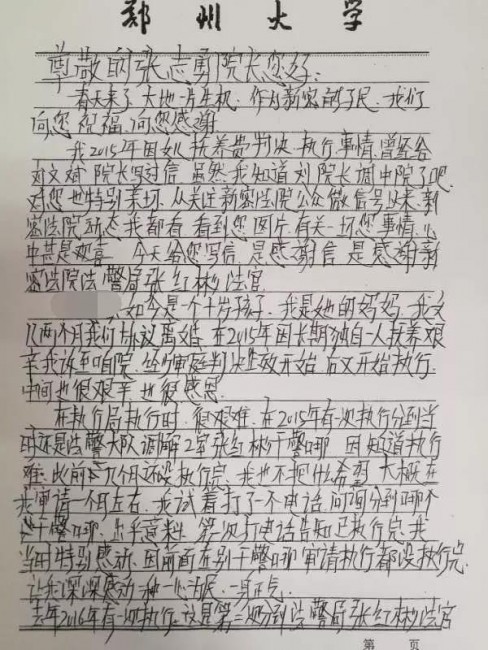 郑州大学
尊敬的张志勇院长您好:
春天来了,大地一片生机,作为新密的子民,我们
向您祝福,向您感谢。
我2015年因女儿抚养费判决执行事情,曾经给
刘文斌院长写过信,虽然我知道刘院长调中院了吧,
对您也特别关怀,从关注新密法院公众微信号以来,新
密法院动态我都看,看到您图片,有关一切您事情,心
中甚是欢喜。今天给您写信,是感谢信,是感谢新
密法院法警局张红彬法官
,如今是一个十岁孩子,我是她的妈妈,我女
儿两个月我们协议离婚,在2015年因长期独自一人抚养艰
辛我诉至咱院,经审庭判决生效开始,后又开始执行。
中间也很艰辛,也很感恩。
在执行局执行时,很艰难,在2015年有一次执行分到当
时还是法警大队调解2室张红彬干警哪,因知道执行
难,此前几个月还没执行完,我也不抱什么希望,大概在
我申请一个月左右,我试着打了一个电话,问问分到哪个
干警哪,出乎意料,第一次打电话告知已执行完,我
当时特别感动,因前面在别干警哪审请执行都没执行完,
让我深深感动一种一心为民、一身正气。
去年2016年有一次执行,这是第二次分到法警局张红彬法官
第 页